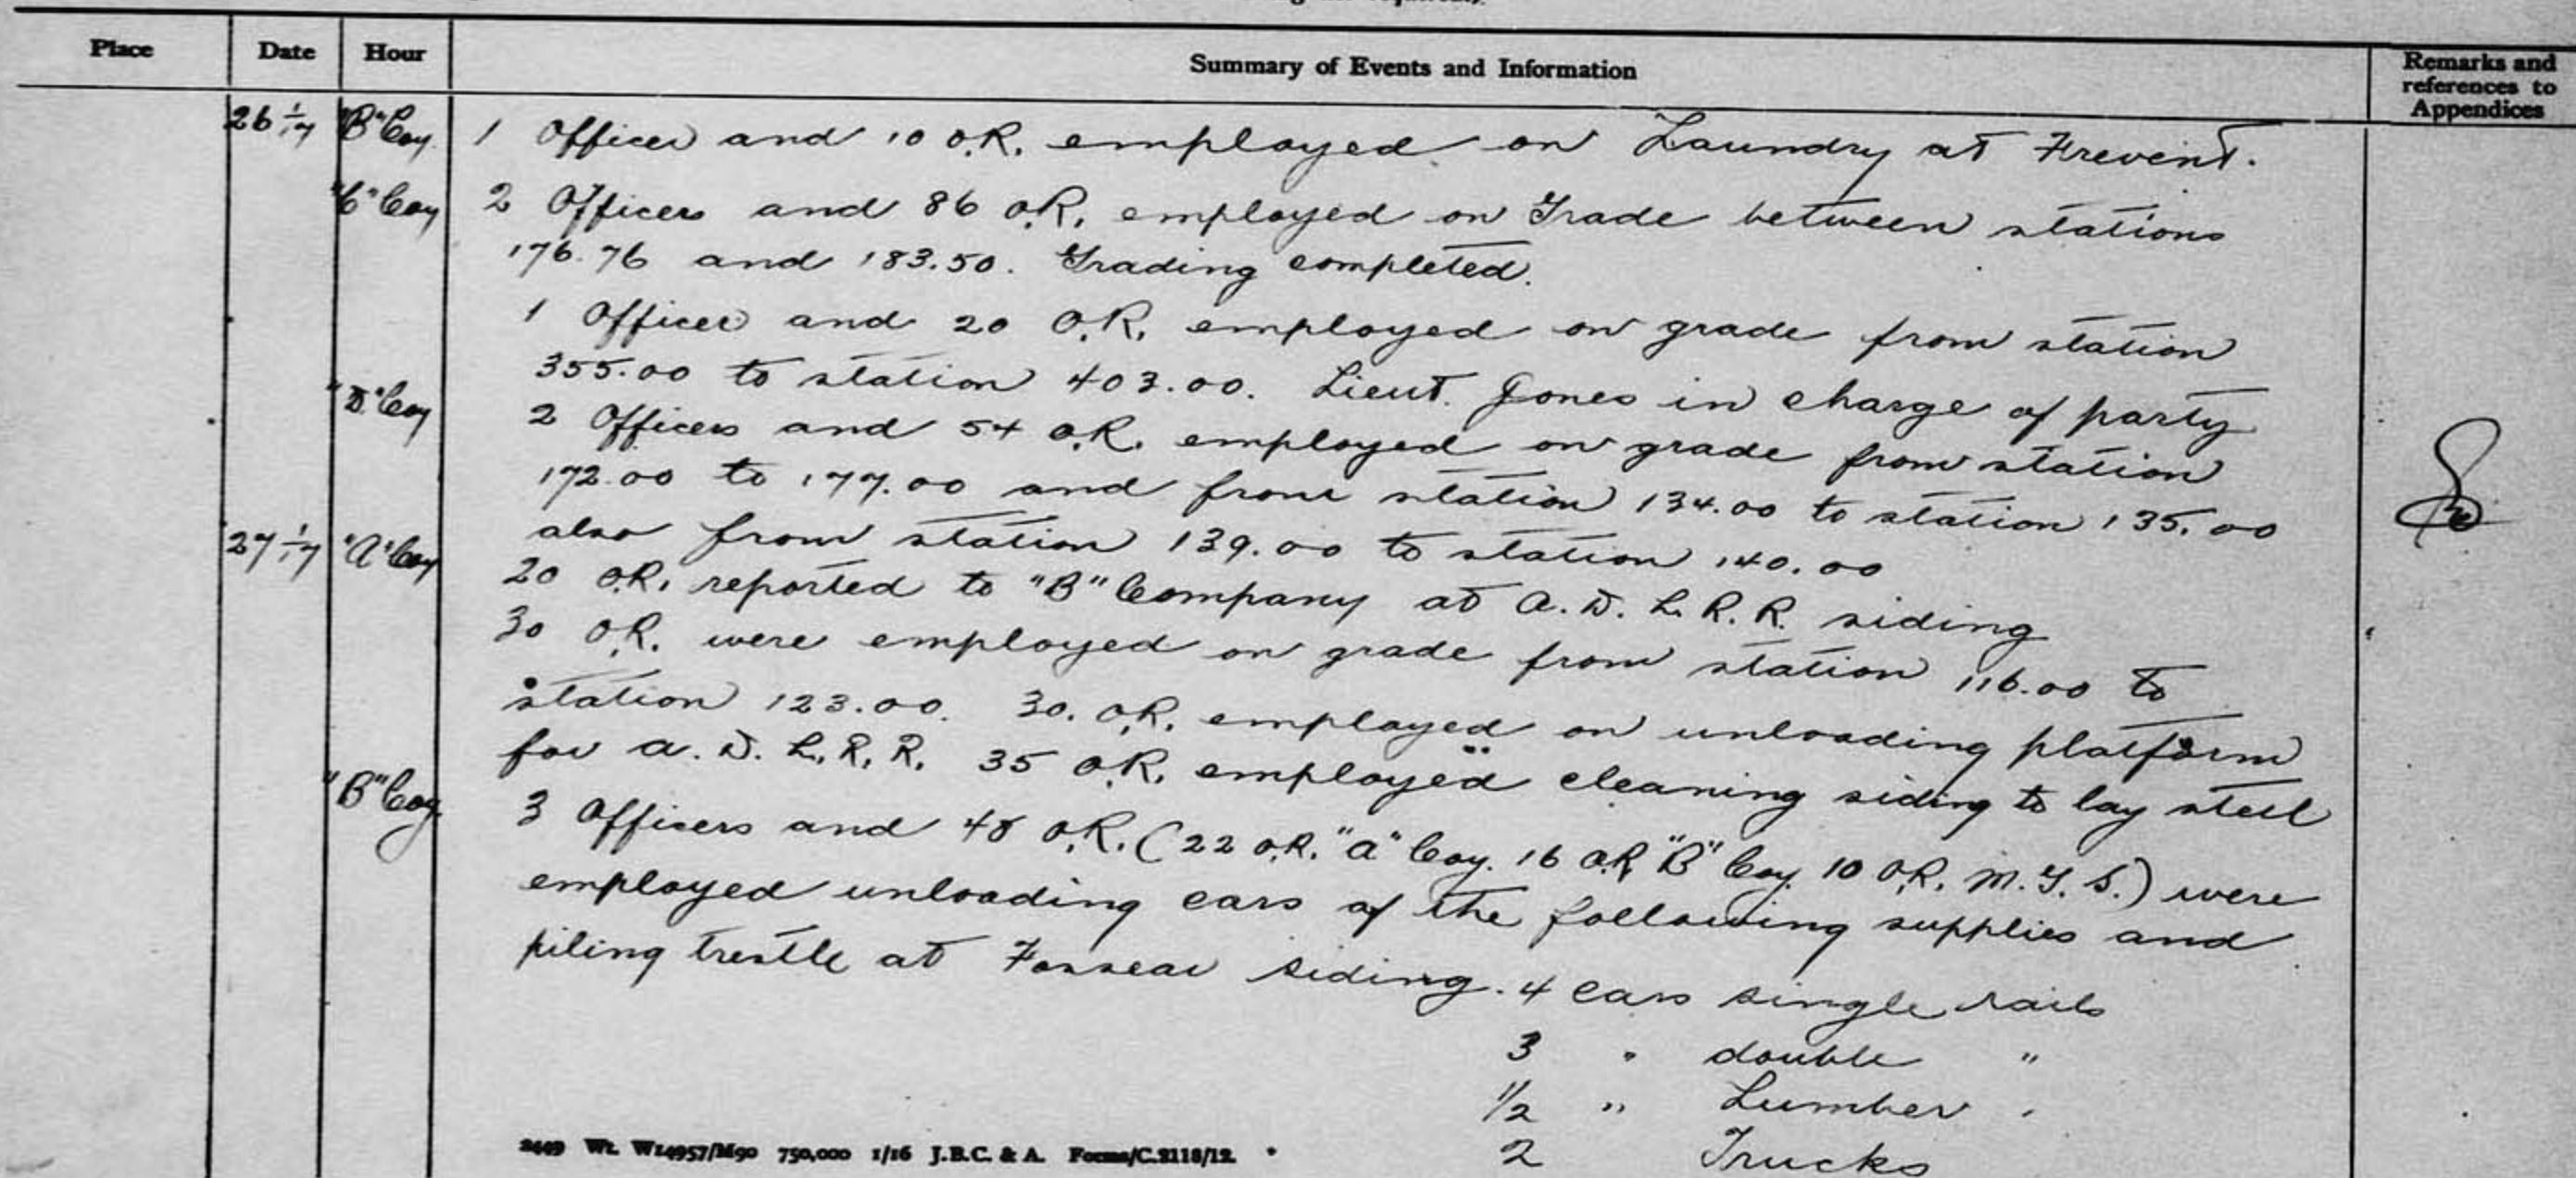 Place Date Hour Summary of Events and Information Remarks and references to Appendices
26 1/17 "B" Coy. 1 Officer and 10 O.R. employed on Laundry at Frevent.
"C" Coy 2 Officers and 86 O.R. employed on Grade between stations
176.76 and 183.50. Grading completed.
1 Officer and 20 O.R. employed on grade from station
355.00 to station 403.00. Lieut. Jones in charge of party
"D" Coy 2 Officers and 54 O.R. employed on grade from station
172.00 to 177.00 and from station 134.00 to station 135.00
also from station 139.00 to station 140.00
27 1/17 "A" Coy 20 O.R. reported to "B" Company at A.D.L.R.R. siding
30 O.R. were employed on grade from station 116.00 to
station 123.00. 30. O.R. employed on unloading platform
for A.D.L.R.R. 35 O.R. employed cleaning siding to lay steel
"B" Coy. 3 Officers and 48 O.R. (22 O.R. "A" Coy. 16 O.R. "B" Coy. 10 O.R. M.G.S.) were
employed unloading cars of the following supplies and
piling trestle at Fosseux siding. 4 cars single rails
3 " double "
1/2 " Lumber .
2 Trucks
2449 Wt. W14957/M90 750,000 1/16 J.B.C. & A. Forms/C.2118/12.